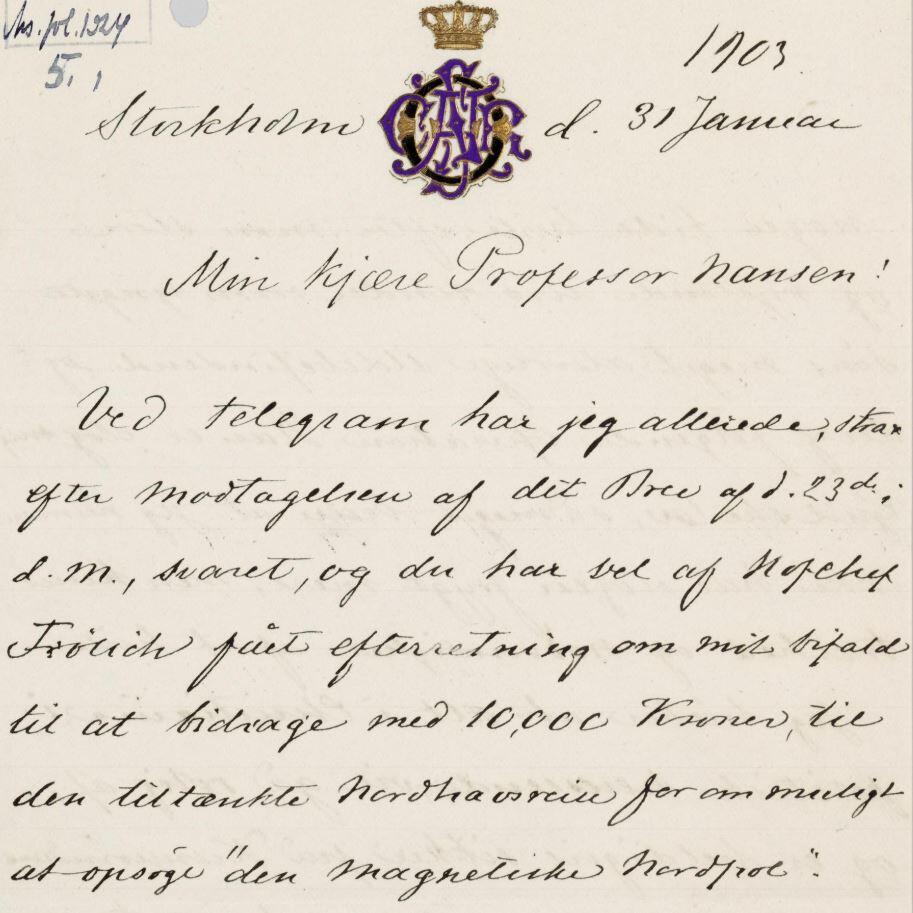 Ms. fol. 1924
5. 1
1903.
Stockholm d. 31 Januar
Min kjære Professor Nansen!
Ved telegram har jeg allerede, strax
efter modtagelsen af dit Brev af d. 23de i
d. m., svaret, og du har vel af Hofchef
Frölich fået efterretning om mit bifald
til at bidrage med 10,000 Kroner, til
den tiltænkte Nordhavsreise for om muligt
at opsöge "den magnetiske Nordpol".